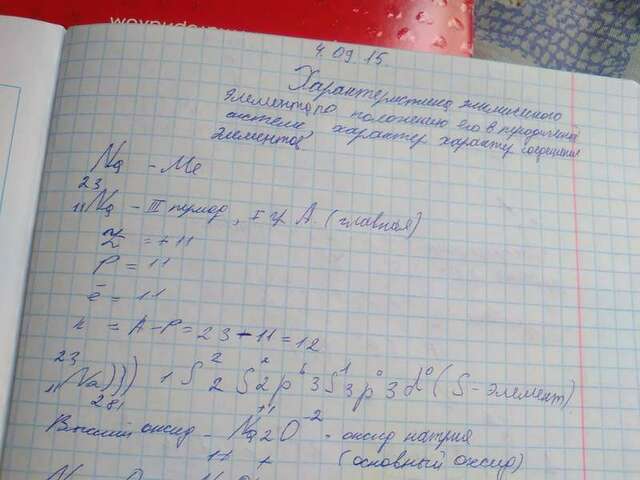 4.09.15.
Характеристика химического
элемента по положению его в периодической
системе, характер характер соединений
элементов
Na - Me
23
11Na - III период, I гр А. (главная)
Z = +11
P = 11
ē = 11
n = A-P = 23-11 = 12
23
11Na))) 1S² 2S² 2p⁶ 3S¹ 3p⁰ 3d⁰ (S-элемент)
281
Высший оксид - Na₂⁺¹O⁻² - оксид натрия
(основный оксид)